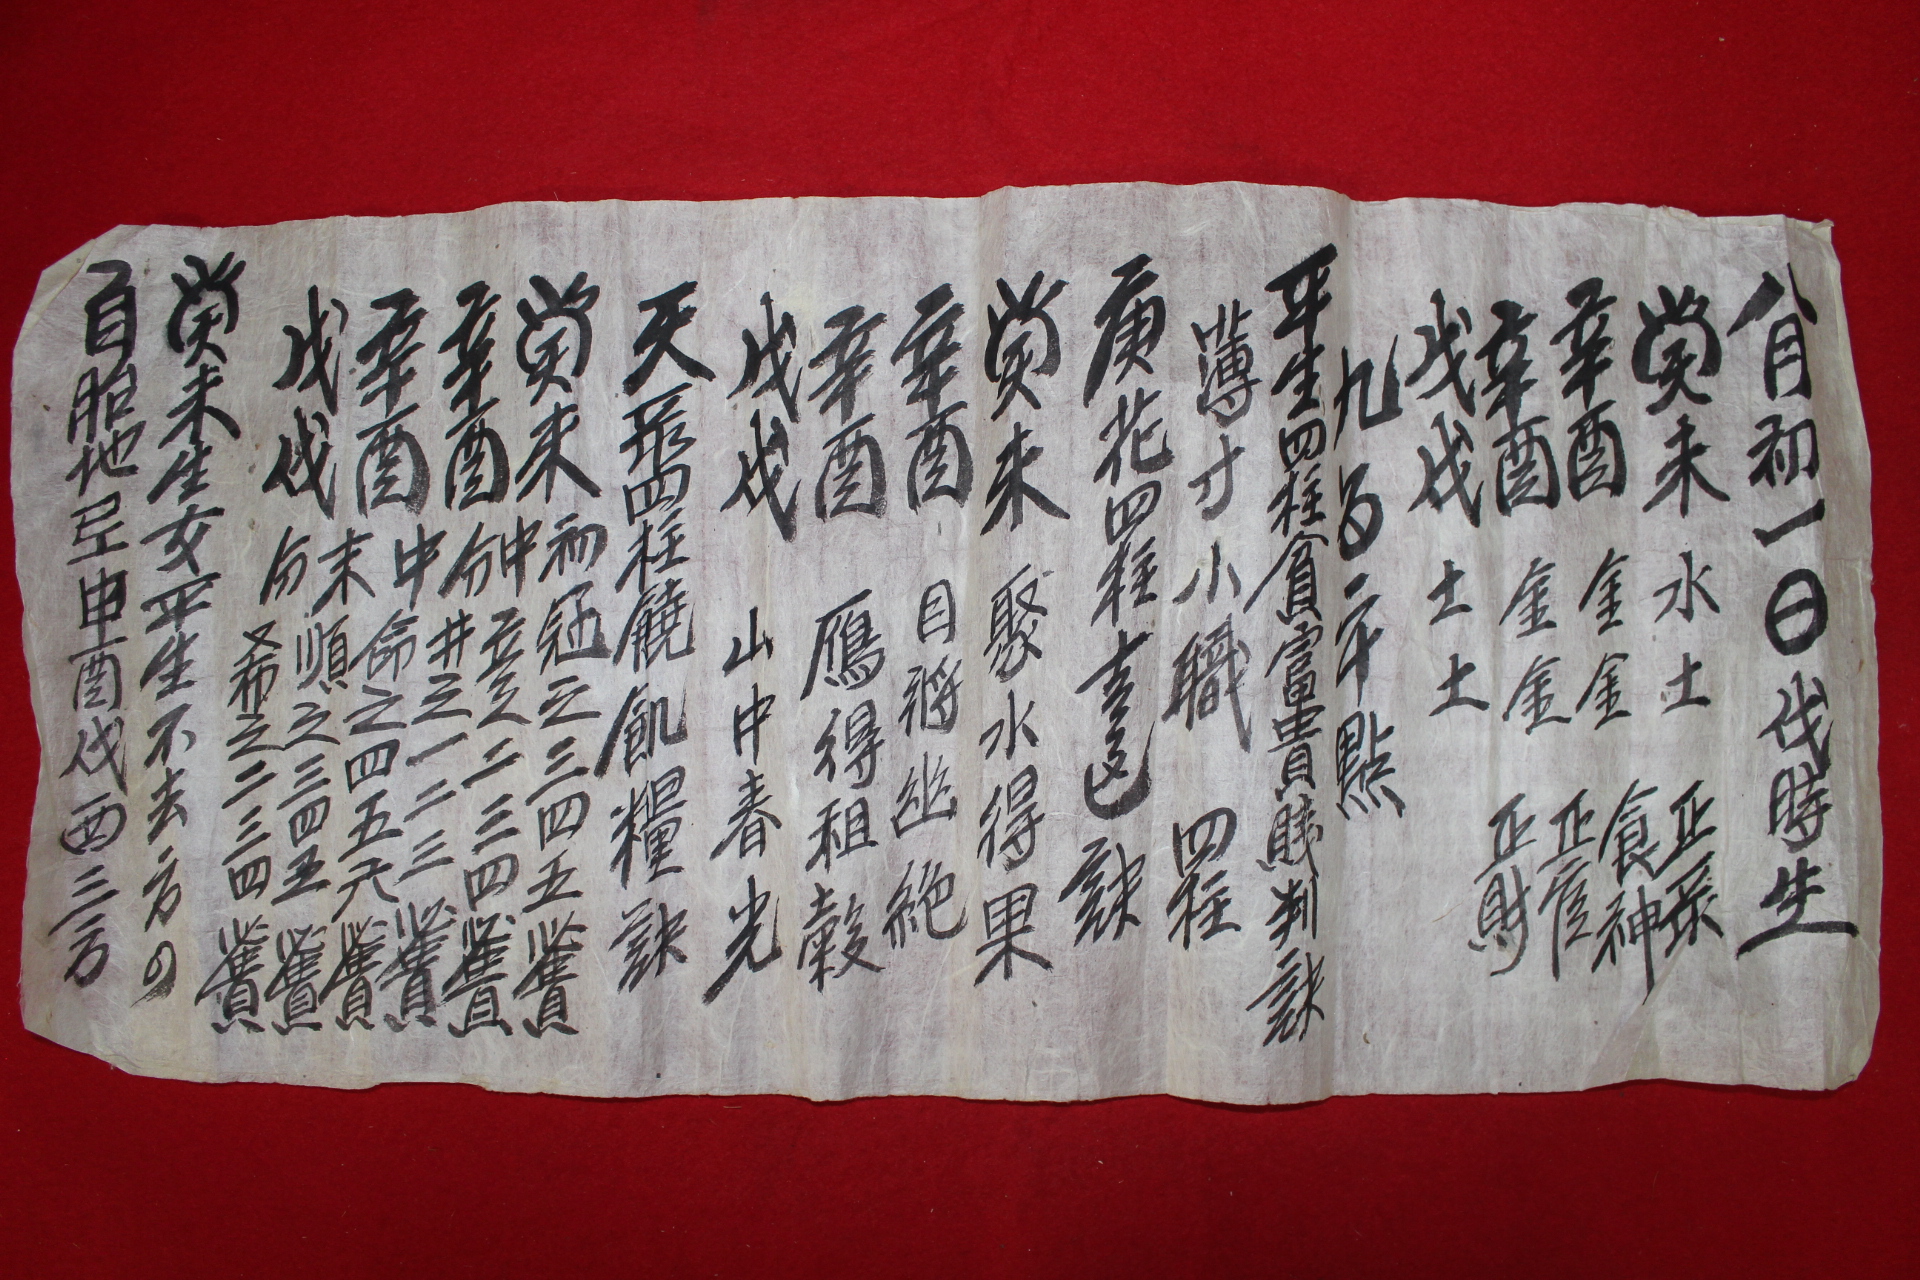 八月初一日戌時生
癸未 水土 正
辛酉 金金 食神
辛酉 金金 正官
戊戌 土土 正財
九百二十點
平生四柱貧富貴賤判訣
薄寸小職 四柱
庚花四柱 訣
癸未 聚水得果
辛酉 目將 絶
辛酉 鴈得租穀
戊戌 山中春光
天 四柱饒飢糧訣
癸未 初 冠之三四五
辛酉 中分 之二三四
井之一二三
辛酉 中 命之四五六
戊戌 末分 順之三四五
希之二三四
癸未生女平生不去方の
自胎地 申酉戌西三方